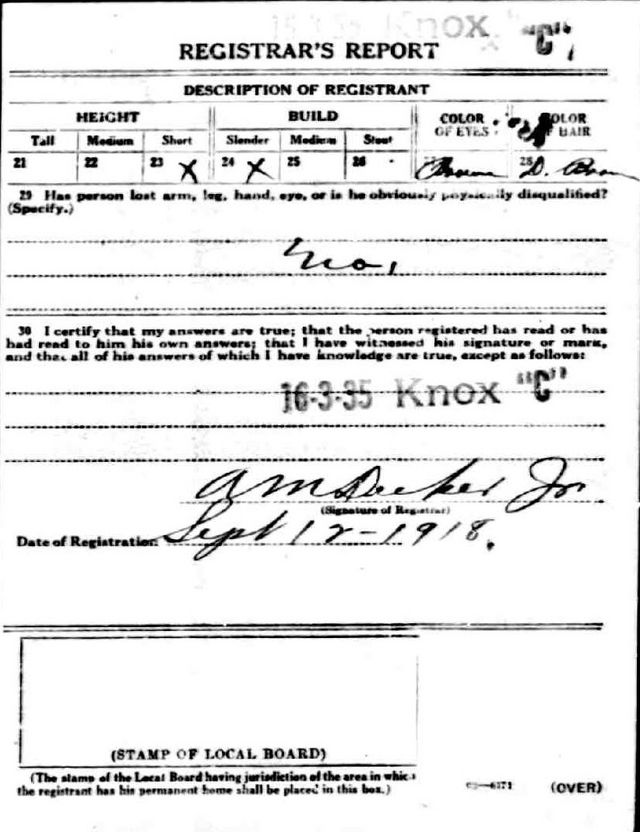 16-3-35 Knox "C"
REGISTRAR'S REPORT
DESCRIPTION OF REGISTRANT
HEIGHT BUILD COLOR OF EYES COLOR OF HAIR
Tall Medium Short Slender Medium Stout
21 22 23 X 24 X 25 26 27 Brown 28 D. Brown
29 Has person lost arm, leg, hand, eye, or is he obviously physically disqualified?
(Specify.)
No,
30 I certify that my answers are true; that the person registered has read or has
had read to him his own answers; that I have witnessed his signature or mark,
and that all of his answers of which I have knowledge are true, except as follows:
16-3-35 Knox "C"
A M Decker Jr
(Signature of Registrar)
Date of Registration Sept 12-1918.
(STAMP OF LOCAL BOARD)
(The stamp of the Local Board having jurisdiction of the area in which
the registrant has his permanent home shall be placed in this box.)
(OVER)